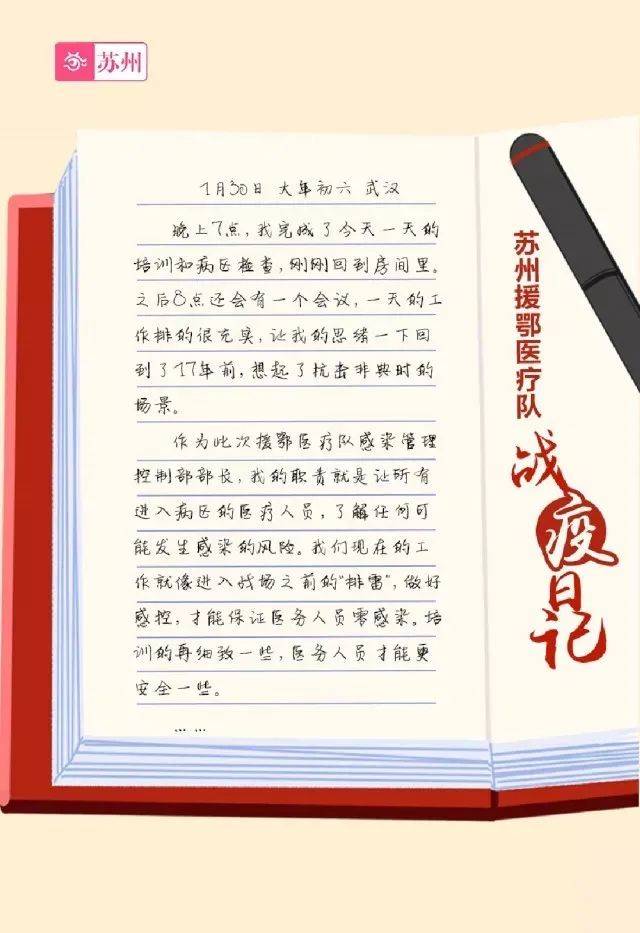 苏州
1月30日 大年初六 武汉
晚上7点,我完成了今天一天的
培训和病区检查,刚刚回到房间里。
之后8点还会有一个会议,一天的工
作排的很充实,让我的思绪一下回
到了17年前,想起了抗击非典时的
场景。
作为此次援鄂医疗队感染管理
控制部部长,我的职责就是让所有
进入病区的医疗人员,了解任何可
能发生感染的风险。我们现在的工
作就像进入战场之前的“排雷”,做好
感控,才能保证医务人员零感染。培
训的再细致一些,医务人员才能更
安全一些。
苏州援鄂医疗队
战疫日记